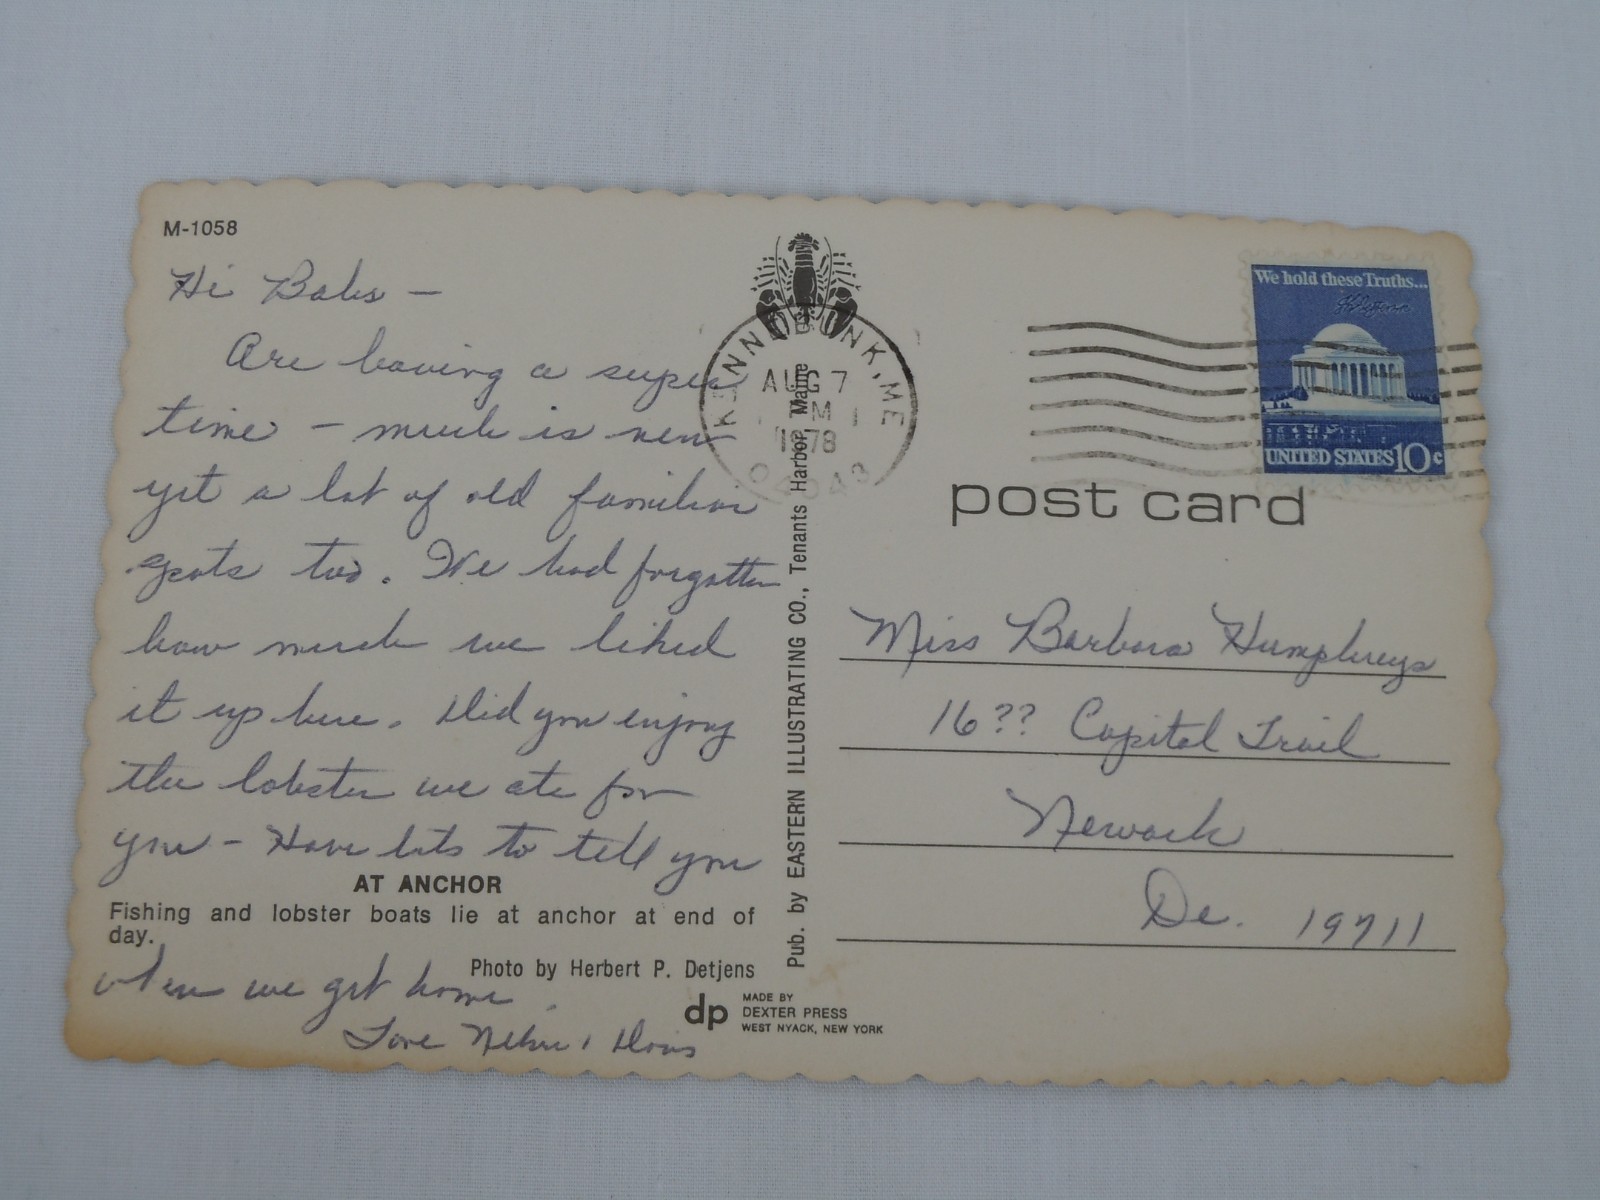 M-1058
Hi Babs -
Are having a super
time - much is new
yet a lot of old familiar
spots too. We had forgotten
how much we liked
it up here. Did you enjoy
the lobster we ate for
you - Have lots to tell you
AT ANCHOR
Fishing and lobster boats lie at anchor at end of
day.
Photo by Herbert P. Detjens
when we get home.
Love
dp
MADE BY
DEXTER PRESS
WEST NYACK, NEW YORK
Pub. by EASTERN ILLUSTRATING CO., Tenants Harbor, Maine
KENNEBUNK, ME
AUG 7
PM
1978
04043
We hold these Truths...
UNITED STATES 10c
post card
Miss Barbara Humphreys
16?? Capitol Trail
Newark
De. 19711